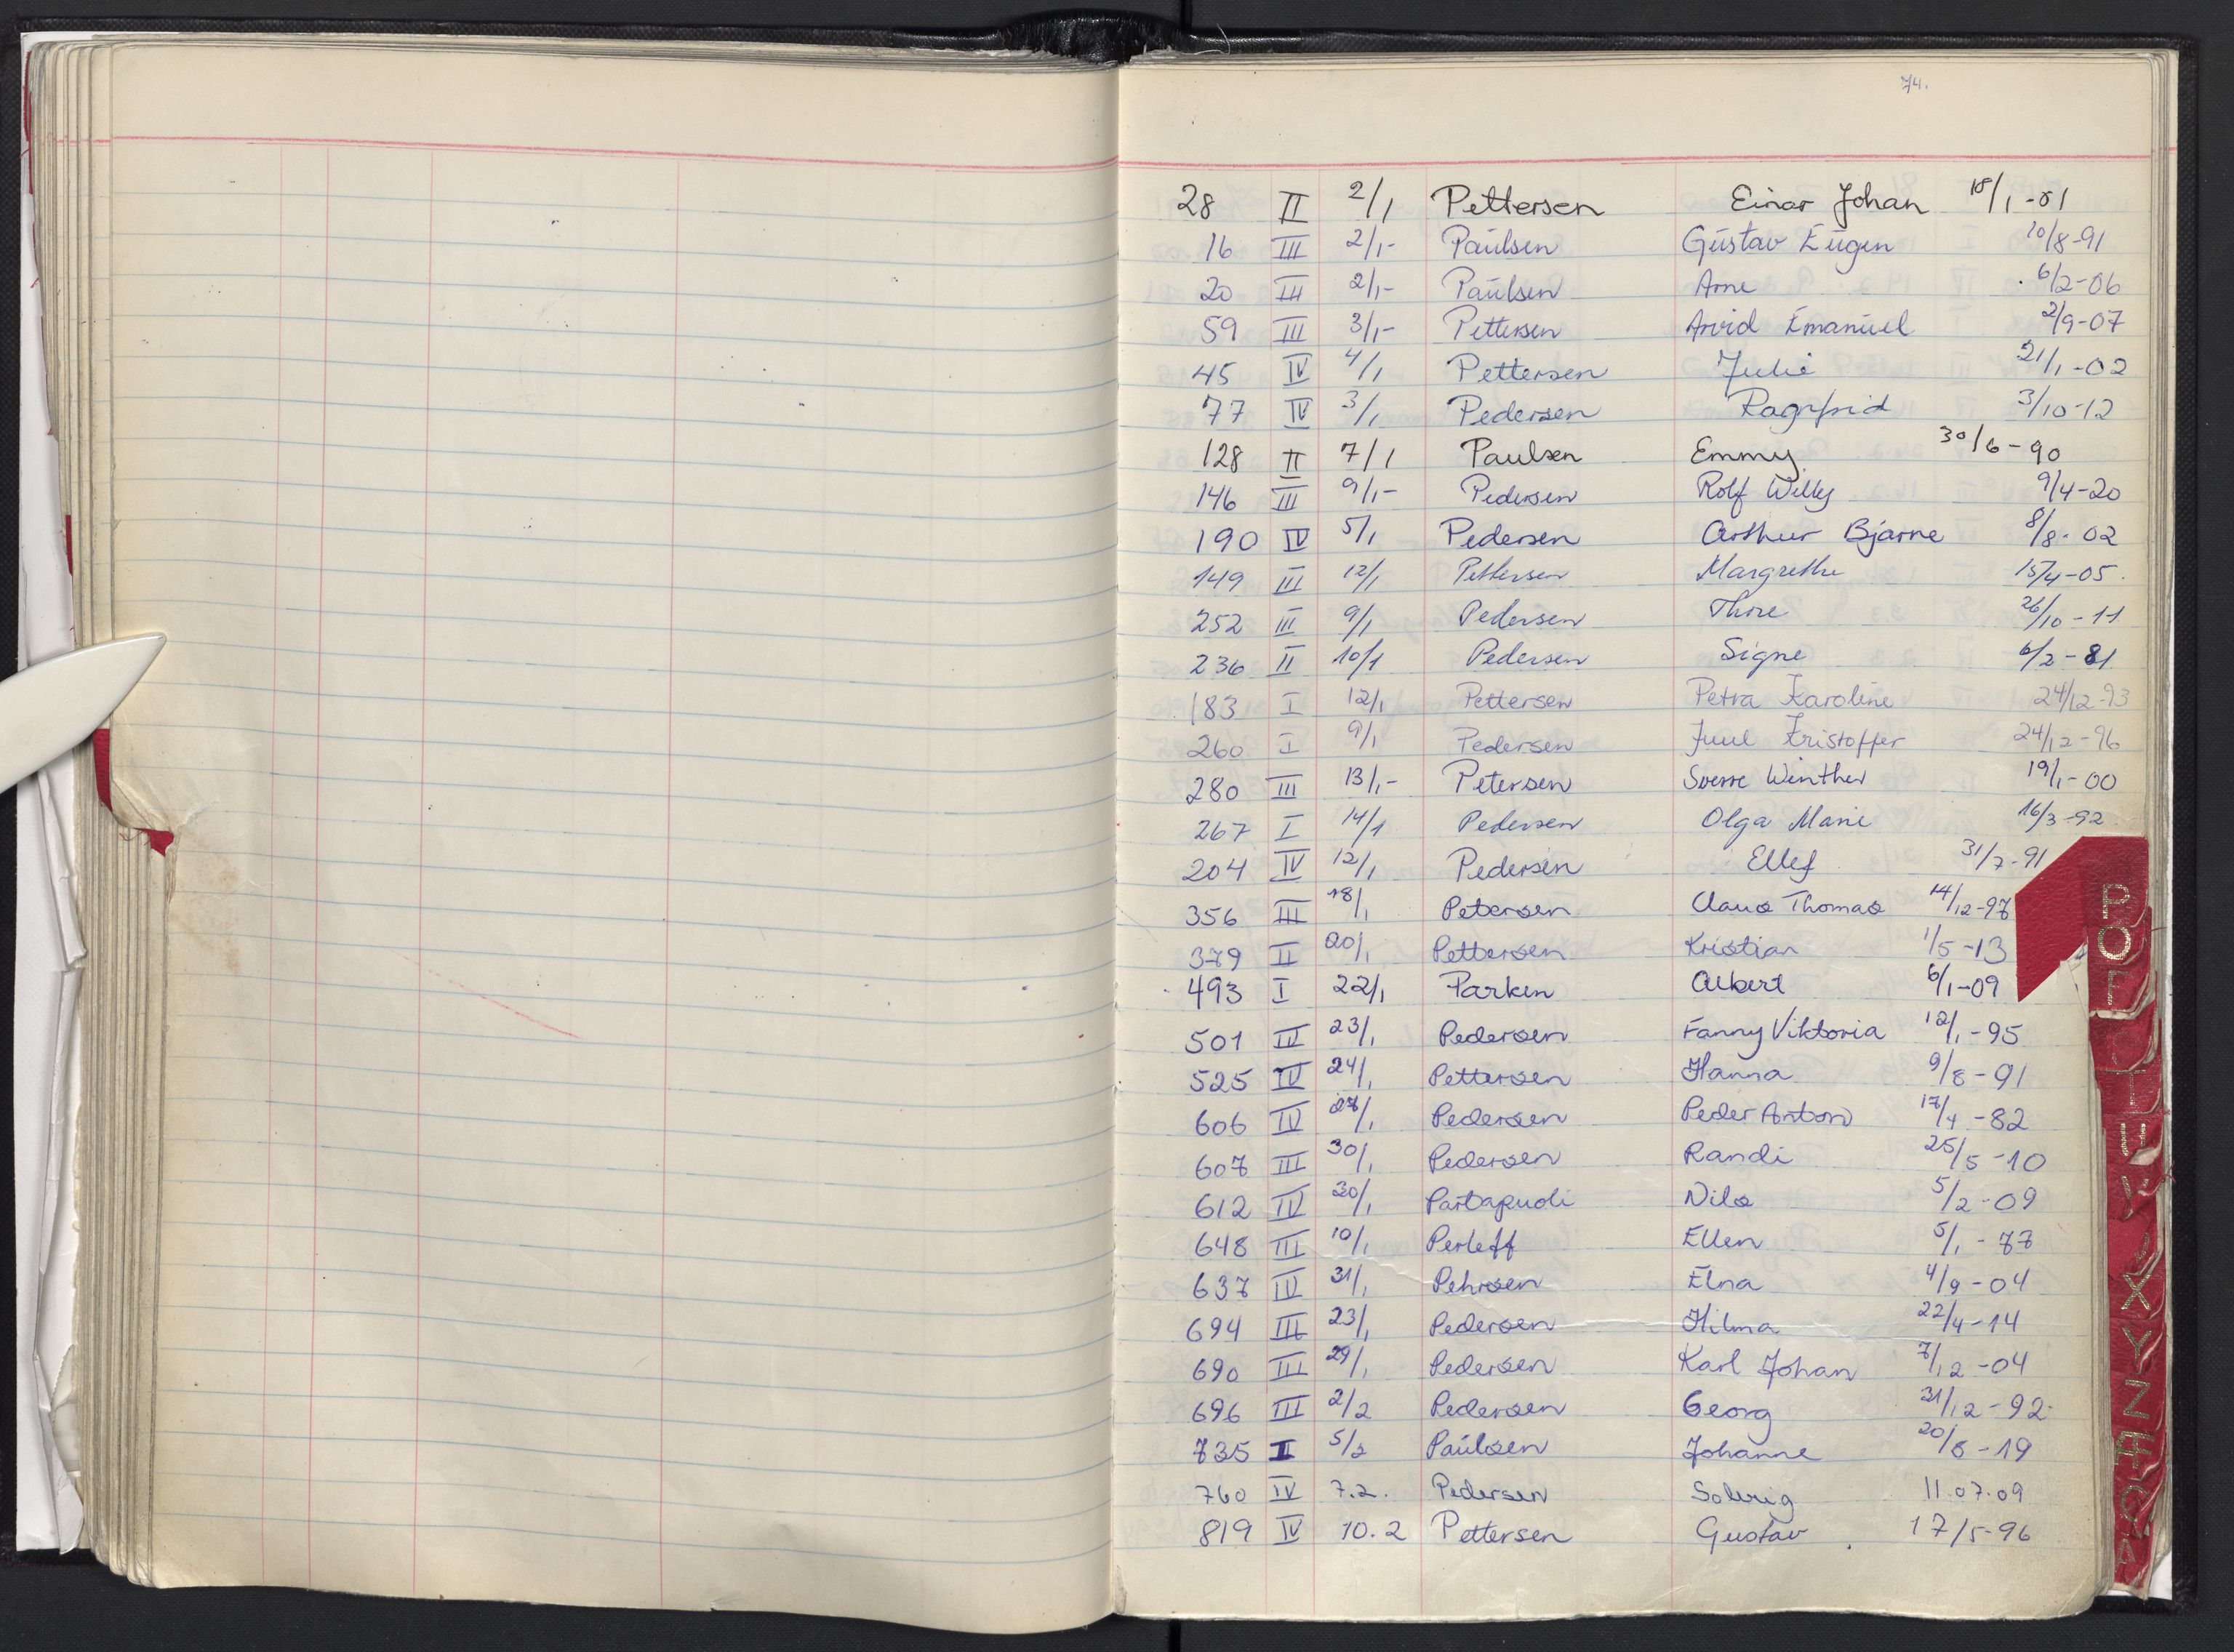 74.
28 II 2/1 Pettersen Einar Johan 18/1-81
16 III 2/1- Paulsen Gustav Eugen 20/8-91
20 III 2/1- Paulsen Arne 6/2-06
59 III 3/1- Pettersen Arvid Emanuel 2/9-07
45 IV 4/1 Pettersen Julie 21/1-02
77 IV 3/1 Pedersen Ragnfrid 3/10-12
128 II 7/1 Paulsen Emmy 30/6-90
146 III 9/1- Pedersen Rolf Willy 9/4-20
190 IV 5/1 Pedersen Arthur Bjarne 8/8-02
149 III 12/1 Pettersen Margrethe 15/4-05.
252 III 9/1 Pedersen Thore 26/10-11
236 II 10/1 Pedersen Signe 6/2-81
183 I 12/1 Pettersen Petra Karoline 24/12-93
260 I 9/1 Pedersen Juul Kristoffer 24/12-96
280 III 13/1- Petersen Sverre Winther 19/1-00
267 I 14/1 Pedersen Olga Marie 16/3-92
204 IV 12/1 Pedersen Ellef 31/7-91
356 III 18/1 Petersen Claus Thomas 14/12-97
379 II 20/1 Pettersen Kristian 1/5-13
493 I 22/1 Parken Albert 6/1-09
501 IV 23/1 Pedersen Fanny Viktoria 12/1-95
525 IV 24/1 Pettersen Hanna 9/8-91
606 IV 27/1 Pedersen Peder Anton 17/4-82
607 III 30/1 Pedersen Randi 25/5-10
612 IV 30/1 Partapuoli Nils 5/2-09
648 III 10/1 Perleff Ellen 5/1-77
637 IV 31/1 Pehrsen Elna 4/9-04
694 III 23/1 Pedersen Hilma 22/4-14
690 III 29/1 Pedersen Karl Johan 7/12-04
696 III 2/2 Pedersen Georg 31/12-92
735 II 5/2 Paulsen Johanne 20/8-19
760 IV 7.2. Pedersen Solveig 11.07.09
819 IV 10.2 Pettersen Gustav 17/5-96
P
O
X
Y
Z